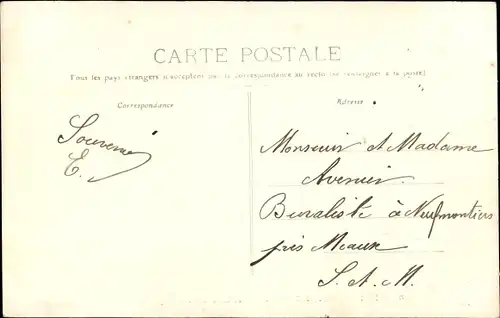 CARTE POSTALE
Tous les pays étrangers n'acceptent pas la correspondance au recto (se renseigner à la poste)
Correspondance
Adresse
Souvenir
E.
Monsieur et Madame
Avenier
Buraliste à Neufmontiers
près Meaux
S. et M.